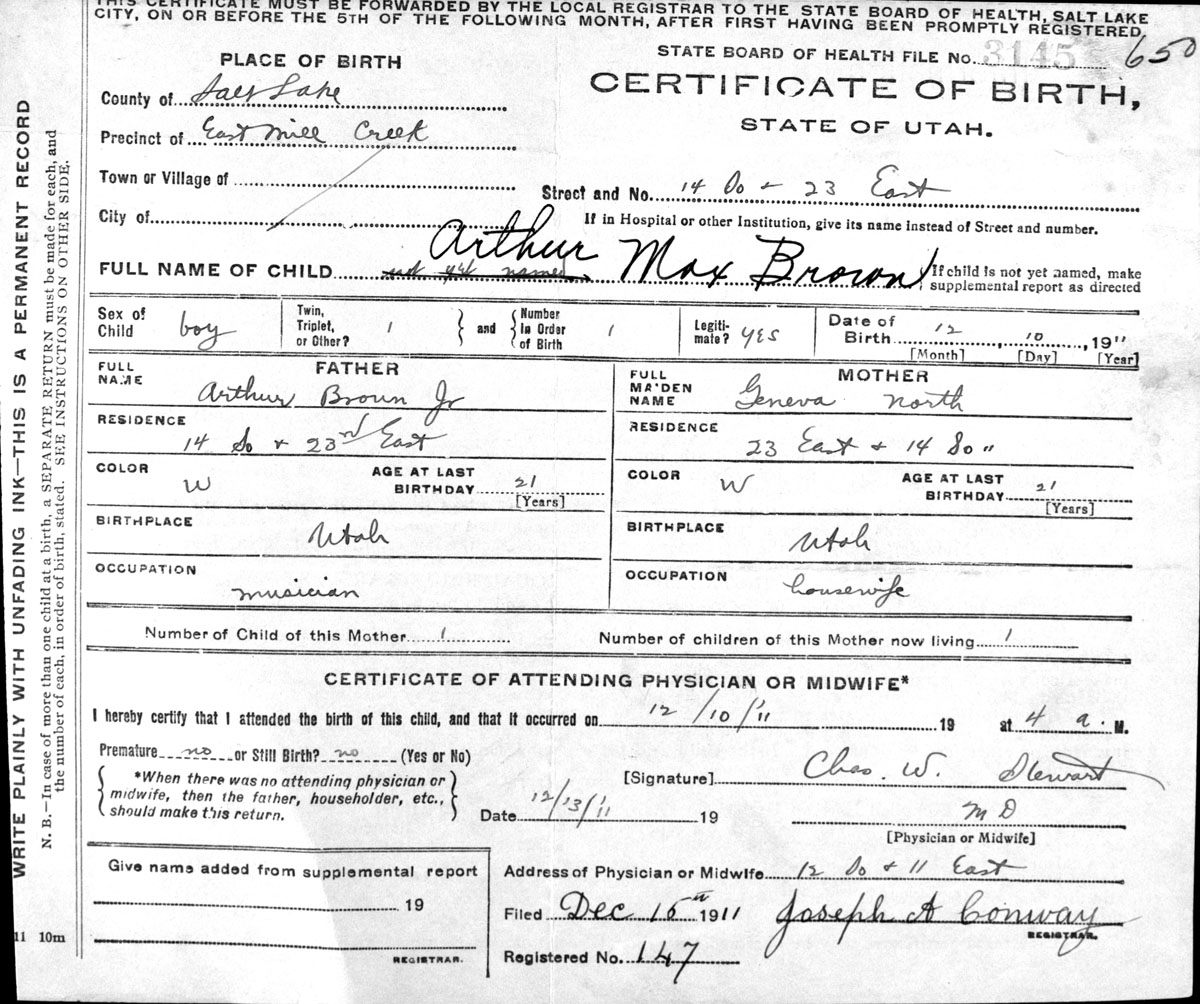 THIS CERTIFICATE MUST BE FORWARDED BY THE LOCAL REGISTRAR TO THE STATE BOARD OF HEALTH, SALT LAKE
CITY, ON OR BEFORE THE 5TH OF THE FOLLOWING MONTH, AFTER FIRST HAVING BEEN PROMPTLY REGISTERED.
STATE BOARD OF HEALTH FILE No. 3145 650
CERTIFICATE OF BIRTH,
STATE OF UTAH.
PLACE OF BIRTH
County of Salt Lake
Precinct of East Mill Creek
Town or Village of
Street and No. 14 So + 23 East
City of
If in Hospital or other Institution, give its name instead of Street and number.
FULL NAME OF CHILD not yet named Arthur Max Brown
If child is not yet named, make
supplemental report as directed
Sex of Child boy
Twin, Triplet, or Other? 1 and Number In Order of Birth 1
Legiti-mate? yes
Date of Birth 12, 10, 1911
[Month] [Day] [Year]
FATHER
FULL NAME Arthur Brown Jr
RESIDENCE
14 So + 23rd East
COLOR W AGE AT LAST BIRTHDAY 21
[Years]
BIRTHPLACE
Utah
OCCUPATION
musician
MOTHER
FULL MAIDEN NAME Geneva North
RESIDENCE
23 East + 14 So "
COLOR W AGE AT LAST BIRTHDAY 21
[Years]
BIRTHPLACE
Utah
OCCUPATION
housewife
Number of Child of this Mother 1 Number of children of this Mother now living 1
CERTIFICATE OF ATTENDING PHYSICIAN OR MIDWIFE*
I hereby certify that I attended the birth of this child, and that it occurred on 12/10/'11 19 at 4 a. M.
Premature no or Still Birth? no (Yes or No)
*When there was no attending physician or
midwife, then the father, householder, etc.,
should make this return.
[Signature] Chas. W. Stewart
Date 12/13/'11 19
M D
[Physician or Midwife]
Give name added from supplemental report
19
REGISTRAR.
Address of Physician or Midwife 12 So + 11 East
Filed Dec 15th 1911 Joseph A Conway
REGISTRAR.
Registered No. 147
11 10m
WRITE PLAINLY WITH UNFADING INK—THIS IS A PERMANENT RECORD
N. B.—In case of more than one child at a birth, a SEPARATE RETURN must be made for each, and
the number of each, in order of birth, stated. SEE INSTRUCTIONS ON OTHER SIDE.